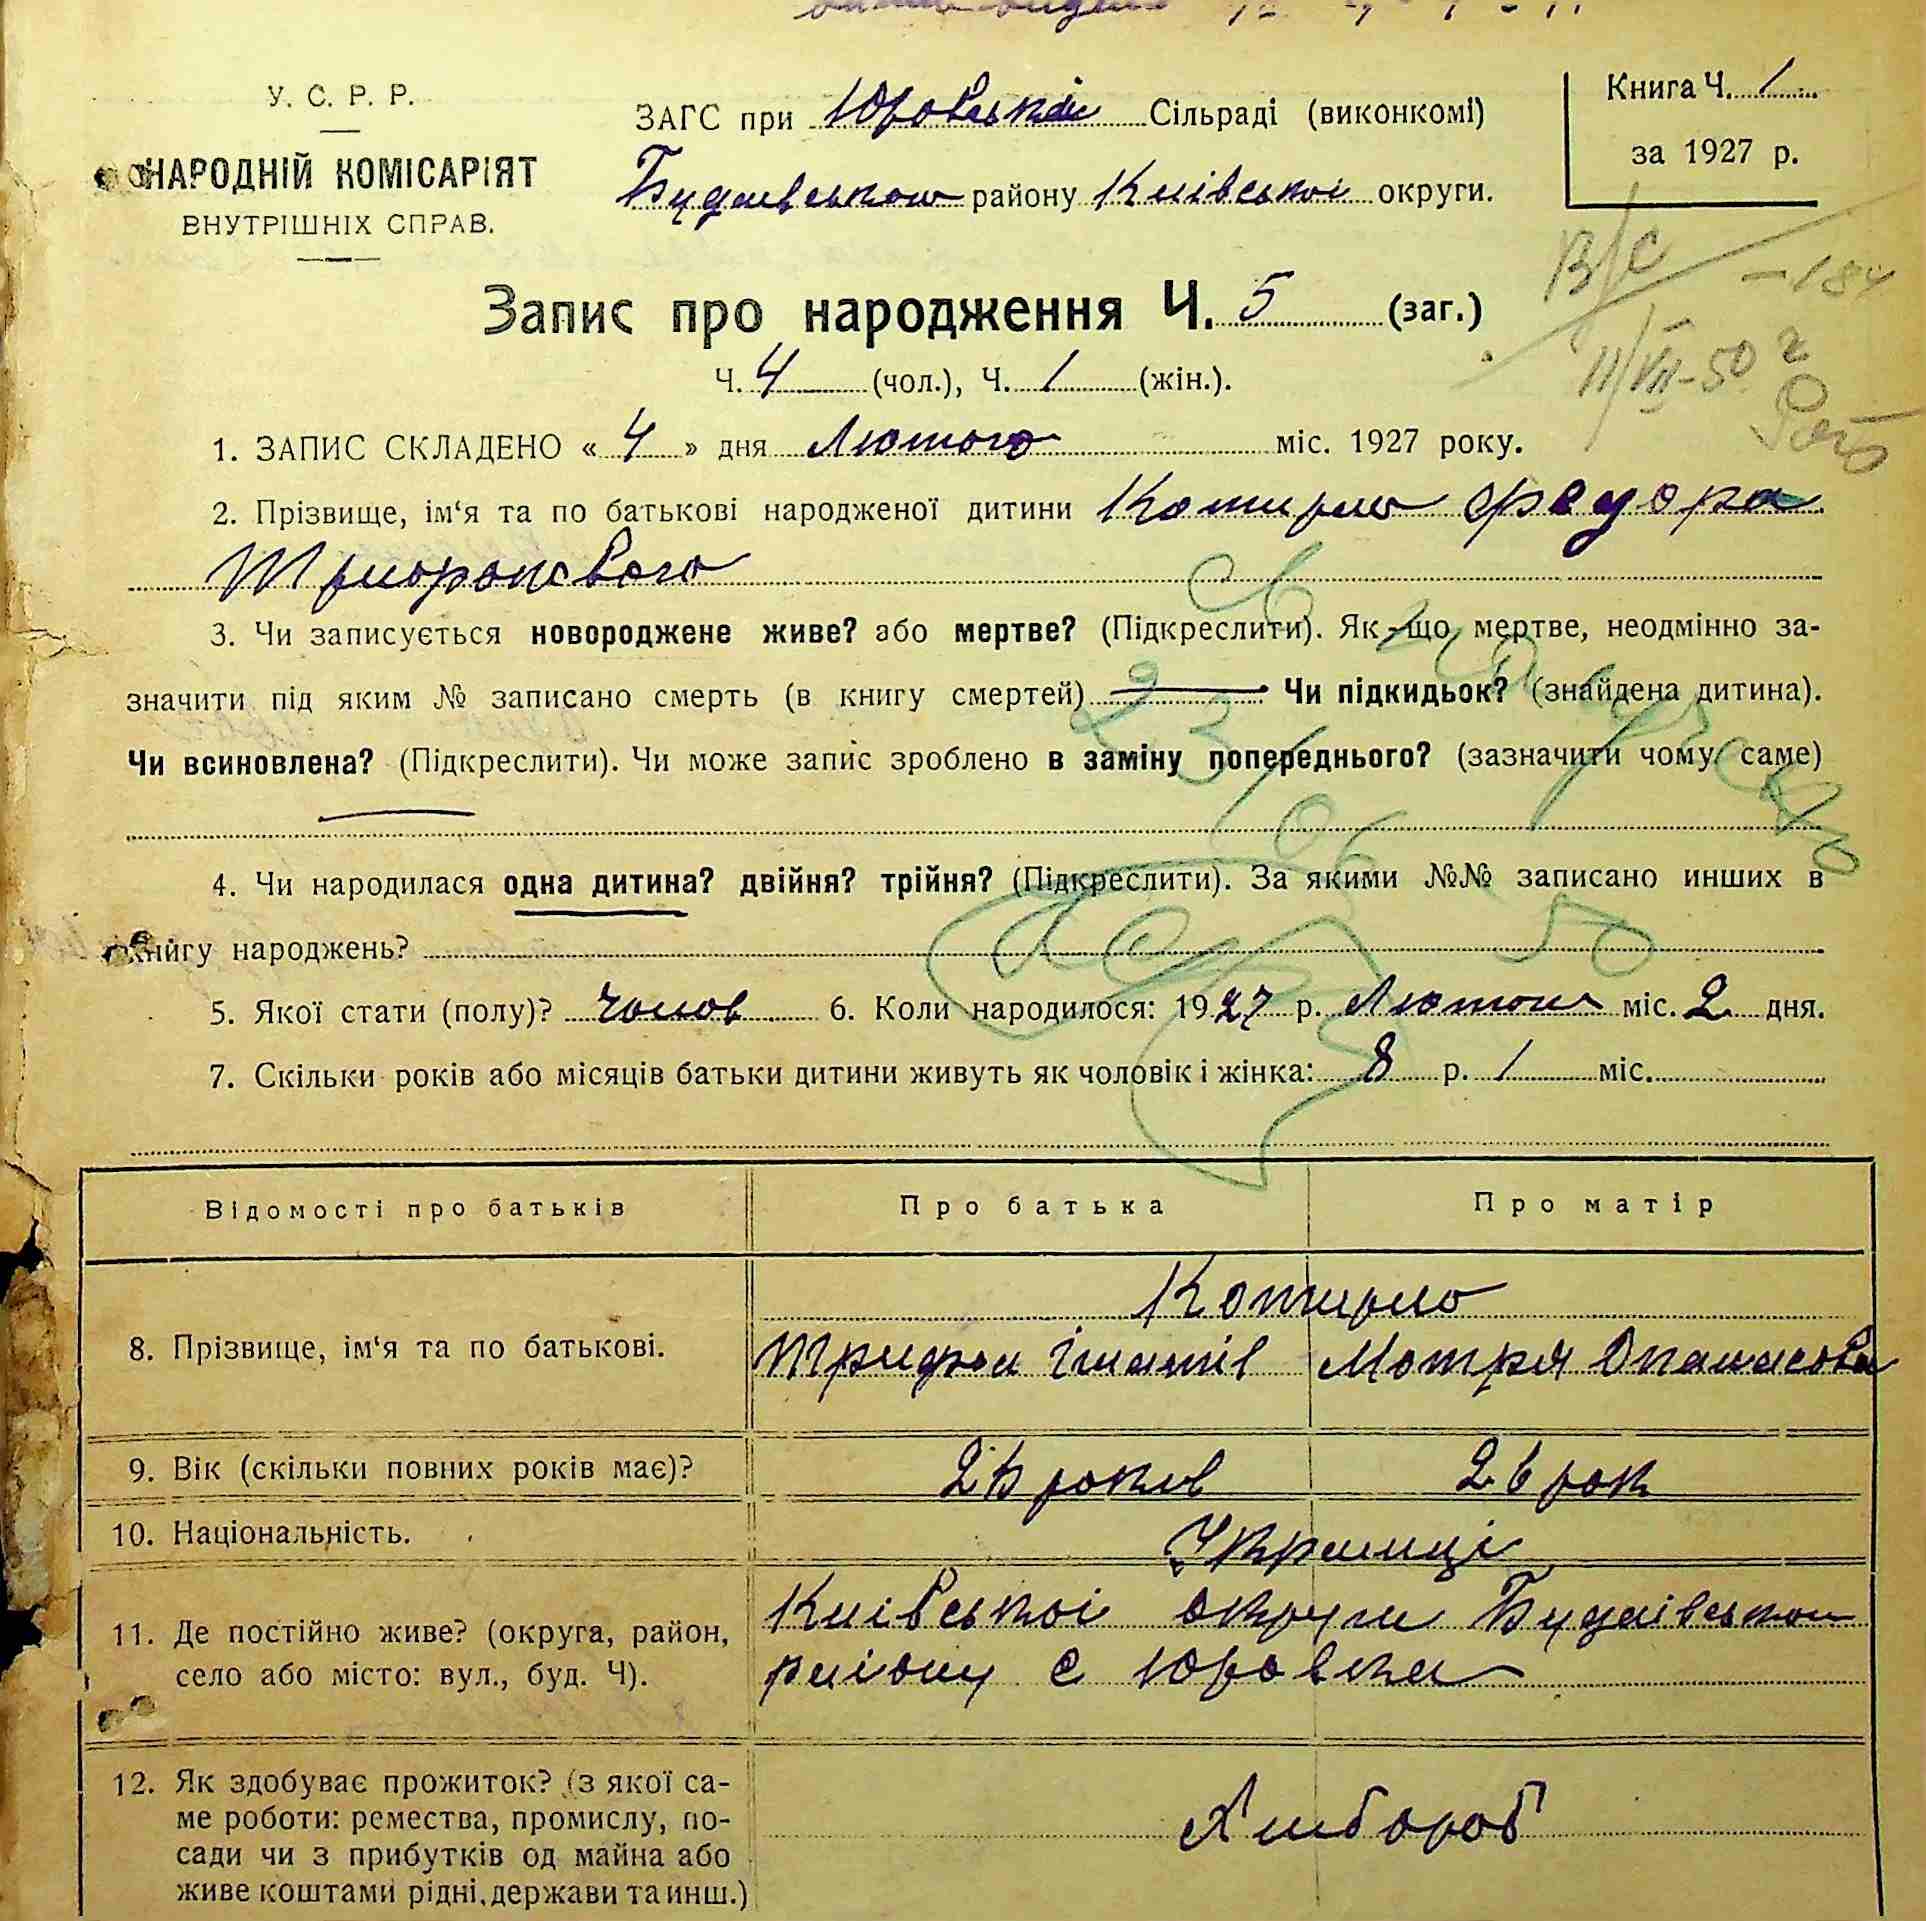 У. С. Р. Р.
НАРОДНІЙ КОМІСАРІЯТ
ВНУТРІШНІХ СПРАВ.
ЗАГС при Юровській Сільраді (виконкомі)
Будаївського району Київської округи.
Книга Ч. 1
за 1927 р.
В/С - 184
11/VII-50 г
Запис про народження Ч. 5 (заг.)
Ч. 4 (чол.), Ч. 1 (жін.).
1. ЗАПИС СКЛАДЕНО « 4 » дня Лютого міс. 1927 року.
2. Прізвище, ім‘я та по батькові народженої дитини Котирло Федора
3. Чи записується новороджене живе? або мертве? (Підкреслити). Як-що мертве, неодмінно за-
значити під яким № записано смерть (в книгу смертей) Чи підкидьок? (знайдена дитина).
Чи всиновлена? (Підкреслити). Чи може запис зроблено в заміну попереднього? (зазначити чому саме)
4. Чи народилася одна дитина? двійня? трійня? (Підкреслити). За якими №№ записано инших в
книгу народжень?
5. Якої стати (полу)? Чолов 6. Коли народилося: 1927 р. Лютого міс. 2 дня.
7. Скільки років або місяців батьки дитини живуть як чоловік і жінка: 8 р. 1 міс.
Відомості про батьків Про батька Про матір
8. Прізвище, ім‘я та по батькові. Котирло
Трифон Ігнатів Мотря Опанасова
9. Вік (скільки повних років має)? років 26 рок
10. Національність. Українці
11. Де постійно живе? (округа, район,
село або місто: вул., буд. Ч).
Київської округи Будаївського
району с Юровка
12. Як здобуває прожиток? (з якої са-
ме роботи: ремества, промислу, по-
сади чи з прибутків од майна або
живе коштами рідні, держави та инш.)
Хлібороб